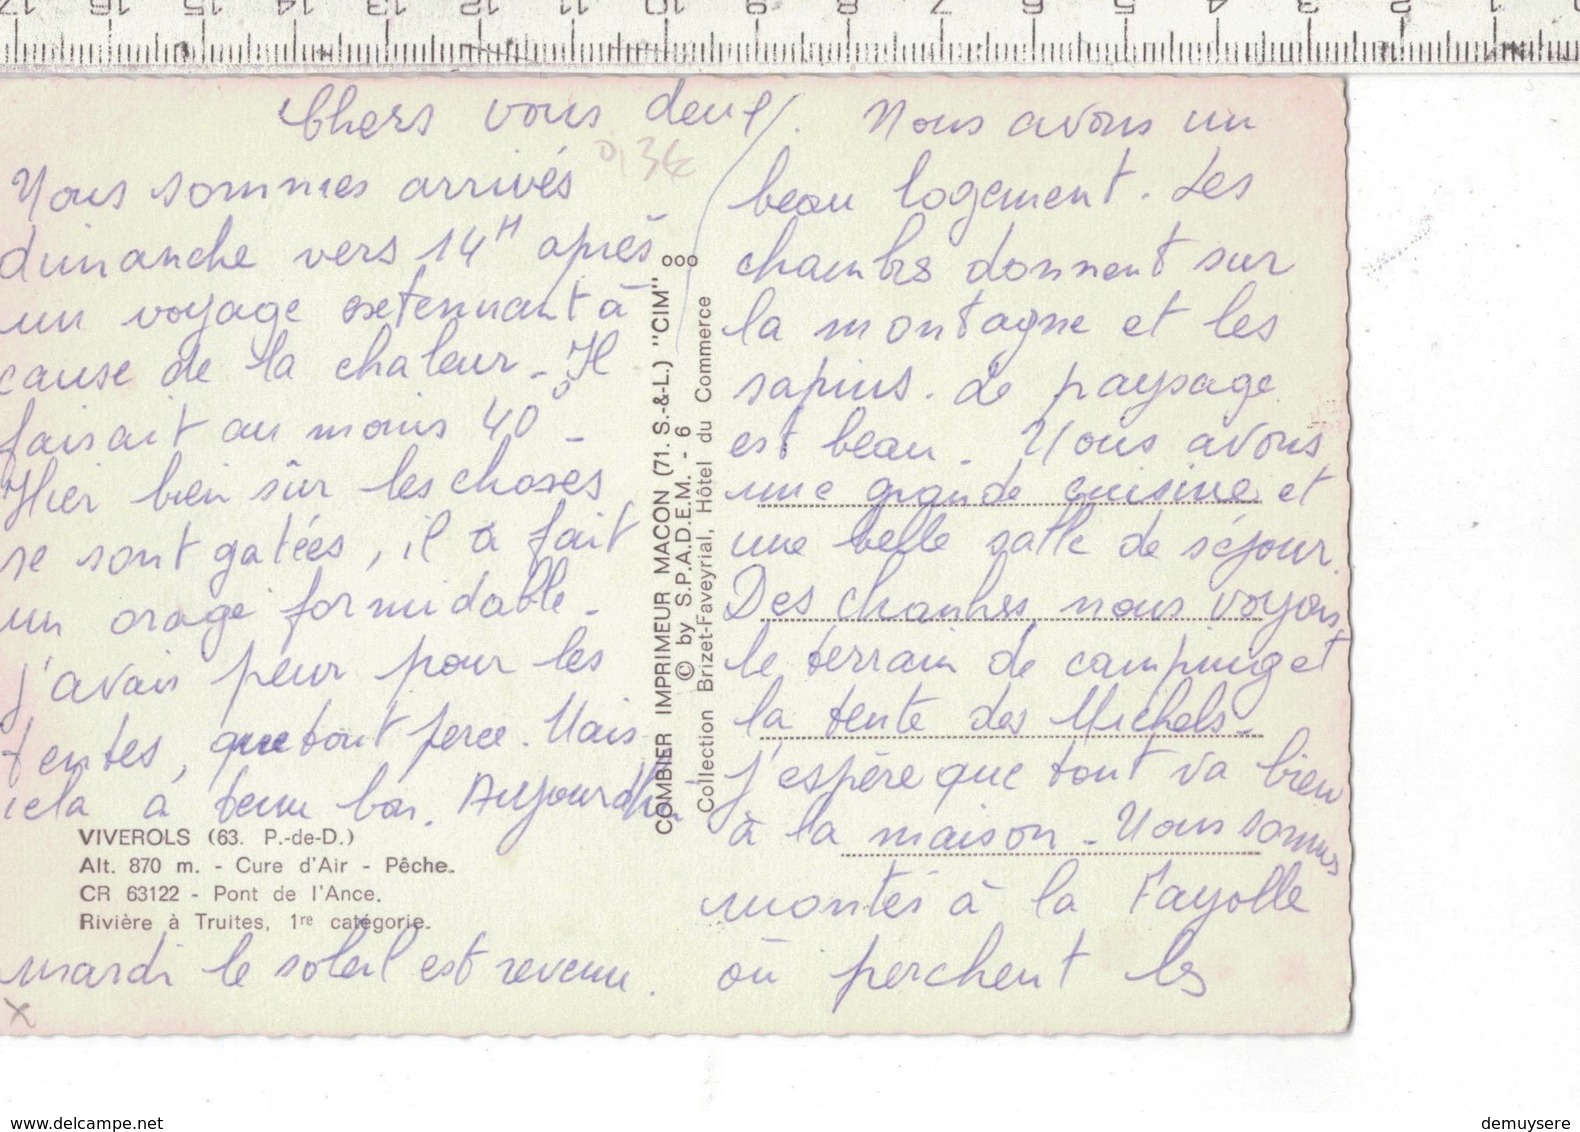 17 16 15 14 13 12 11 10 9 8 7 6 5 4 3 2 1 0
Chers vous deux.
0,3€
Nous sommes arrivés
dimanche vers 14H après
un voyage extennuant à
cause de la chaleur - Il
faisait au moins 40° -
Hier bien sûr les choses
se sont gatées, il a fait
un orage formidable -
j'avais peur pour les
tentes, que tout perce. Mais
cela a tenu bon. Aujourd'hui
VIVEROLS (63. P.-de-D.)
Alt. 870 m. - Cure d'Air - Pêche.
CR 63122 - Pont de l'Ance.
Rivière à Truites, 1re catégorie.
mardi le soleil est revenu.
x
COMBIER IMPRIMEUR MACON (71. S.-&-L.) "CIM"
© by S.P.A.D.E.M. - 6
Collection Brizet-Faveyrial, Hôtel du Commerce
Nous avons un
beau logement. Les
chambres donnent sur
la montagne et les
sapins. Le paysage
est beau - Nous avons
une grande cuisine et
une belle salle de séjour.
Des chambres nous voyons
le terrain de camping et
la tente des Michels -
j'espère que tout va bien
à la maison - Nous sommes
montés à la Fayolle
où perchent les
delcampe.net
demuysere